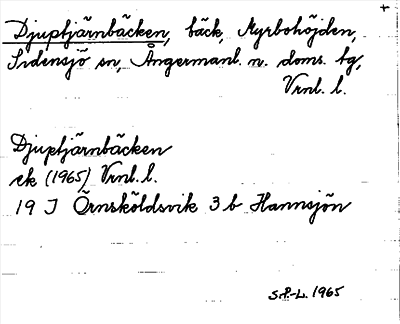 +
Djuptjärnbäcken, bäck, Myrbohöjden,
Sidensjö sn, Ångermanl. n. doms. tg,
Vrnl. l.
Djuptjärnbäcken
ek (1965) Vrnl. l.
19 J Örnsköldsvik 3 b Hannsjön
S.P.-L. 1965